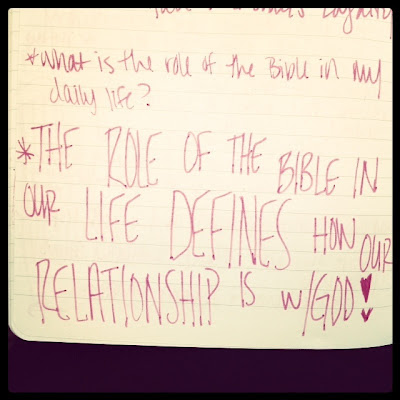 *What is the role of the Bible in my
daily life?
*THE ROLE OF THE BIBLE IN
OUR LIFE DEFINES HOW OUR
RELATIONSHIP IS W/GOD!